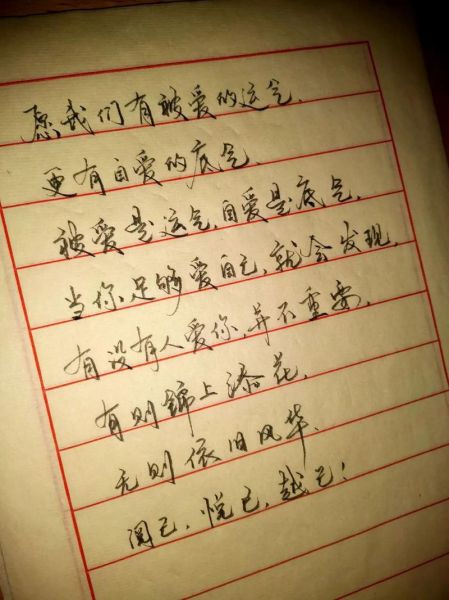 愿我们有被爱的运气.
更有自爱的底气.
被爱是运气,自爱是底气.
当你足够爱自己,就会发现.
有没有人爱你,并不重要.
有则锦上添花.
无则依旧风华.
阅己.悦己.越己!